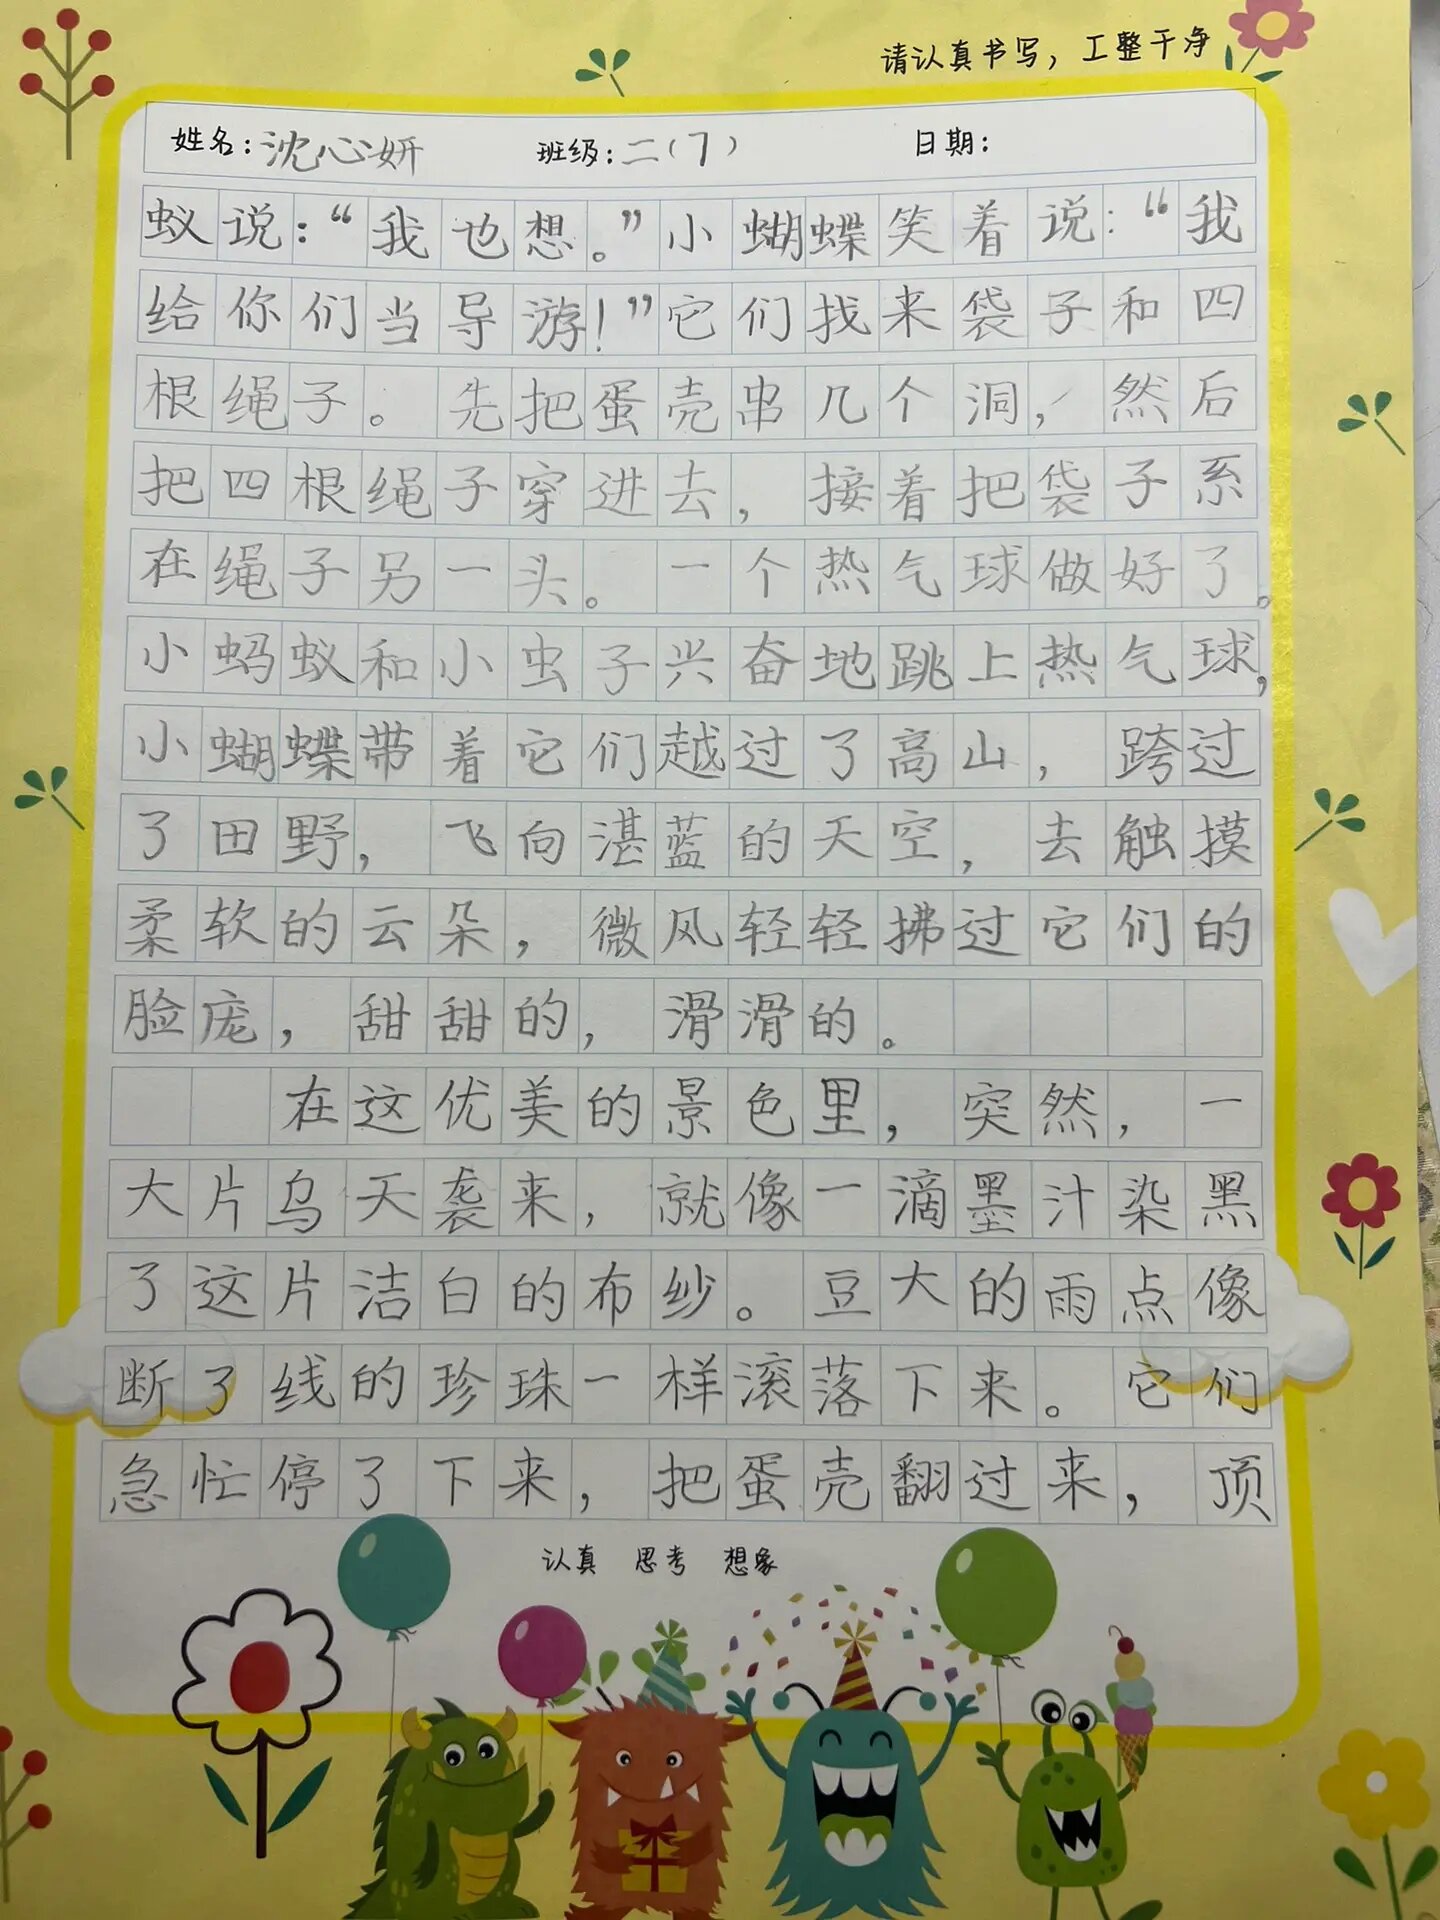 请认真书写，工整干净
姓名：沈心妍 班级：二（7） 日期：
蚁说：“我也想。”小蝴蝶笑着说：“我
给你们当导游！”它们找来袋子和四
根绳子。先把蛋壳串几个洞，然后
把四根绳子穿进去，接着把袋子系
在绳子另一头。一个热气球做好了。
小蚂蚁和小虫子兴奋地跳上热气球，
小蝴蝶带着它们越过了高山，跨过
了田野，飞向湛蓝的天空，去触摸
柔软的云朵，微风轻轻拂过它们的
脸庞，甜甜的，滑滑的。
在这优美的景色里，突然，一
大片乌天袭来，就像一滴墨汁染黑
了这片洁白的布纱。豆大的雨点像
断了线的珍珠一样滚落下来。它们
急忙停了下来，把蛋壳翻过来，顶
认真 思考 想象